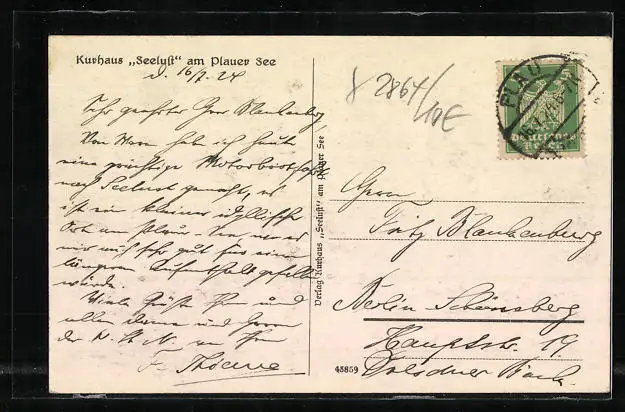 Kurhaus „Seelust“ am Plauer See
d. 16/7. 24
Sehr geehrter Herr Blankenberg
Von Waren hab ich heute
eine prächtige Motorbootfahrt
nach Seelust gemacht, es
ist ein kleiner idyllischer
Ort am Plauer
mir auch sehr gut für einen
längeren Aufenthalt gefallen
würde.
Viele Grüße Ihnen und
allen Damen und Herren
der
F. Thoene
Verlag Kurhaus „Seelust“ am Plauer See
2864/
10E
PLAU
5
Deutsches
Reich
Herrn
Fritz Blankenburg
Berlin Schöneberg
Hauptstr. 19.
Dresdner Bank.
45859